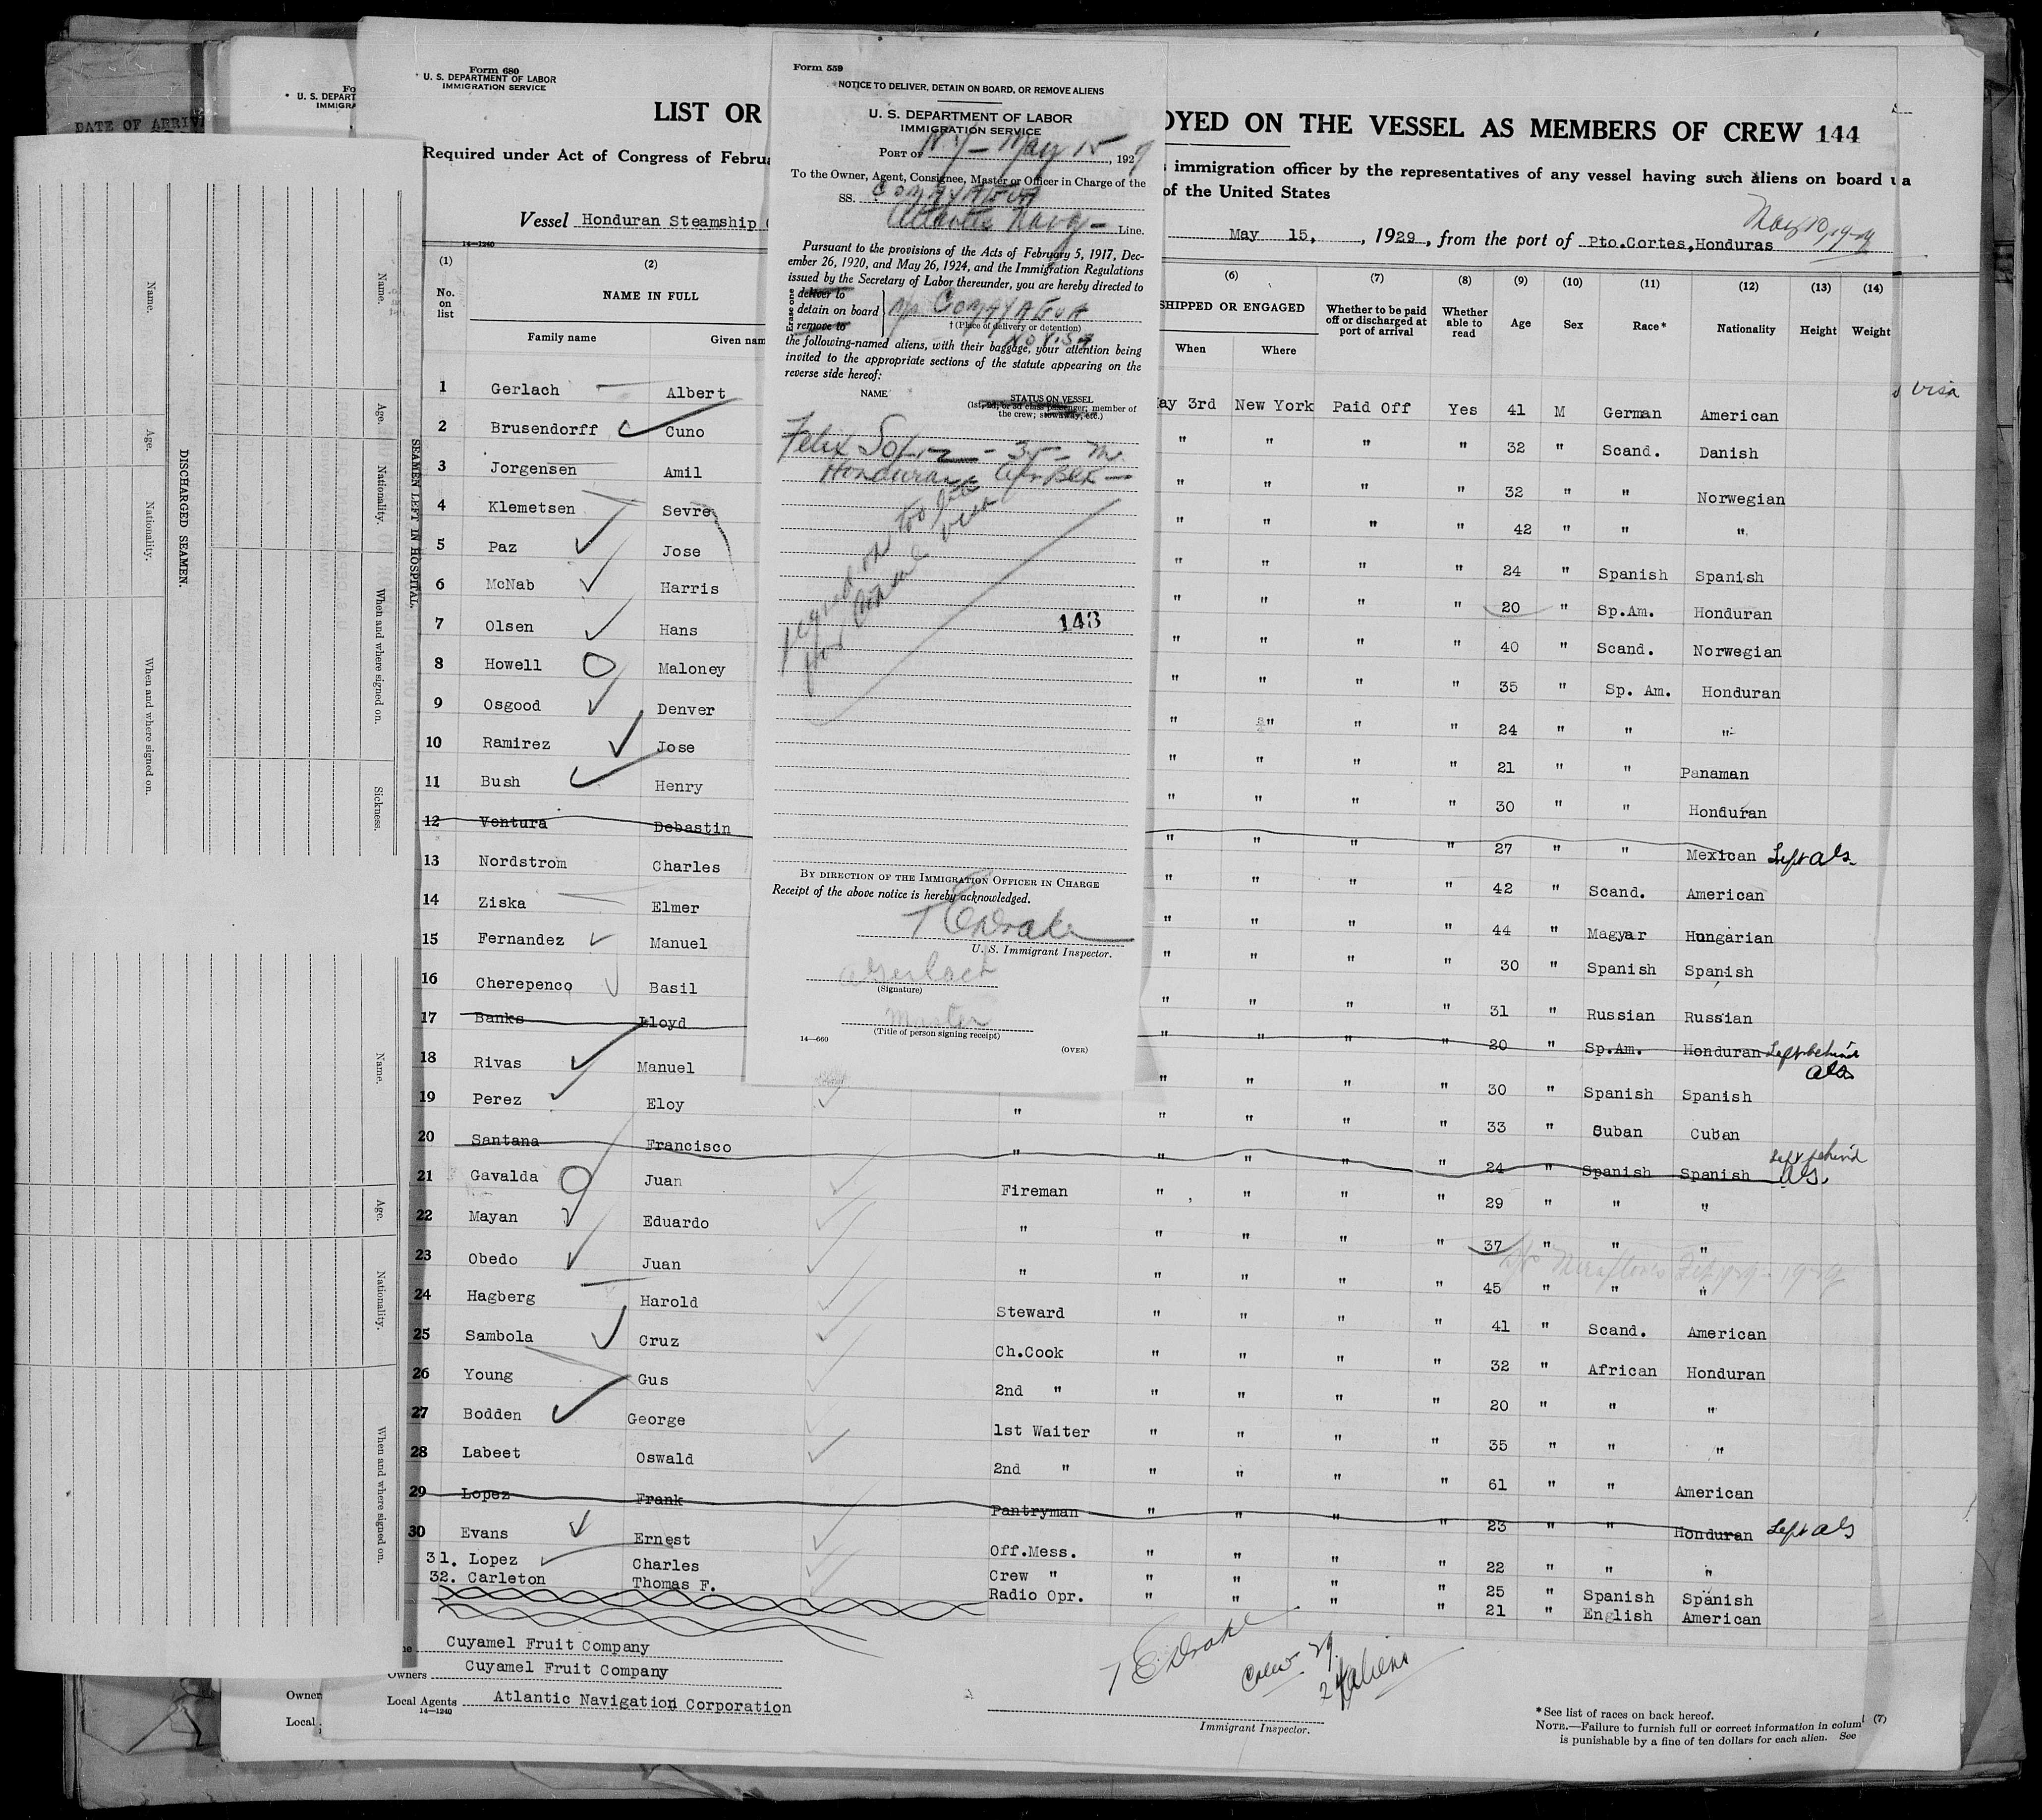 DATE OF ARRIV
Fo
U. S. DEPART
IMMIGRA
Form 680
U. S. DEPARTMENT OF LABOR
IMMIGRATION SERVICE
LIST OR
OYED ON THE VESSEL AS MEMBERS OF CREW 144
Required under Act of Congress of Februa
immigration officer by the representatives of any vessel having such aliens on board u a
of the United States
Vessel Honduran Steamship
May 15, , 1929, from the port of Pto.Cortes, Honduras May 10, 1929
14—1240
Form 559
NOTICE TO DELIVER, DETAIN ON BOARD, OR REMOVE ALIENS
U. S. DEPARTMENT OF LABOR
IMMIGRATION SERVICE
PORT OF N.Y. — May 15, 1929
To the Owner, Agent, Consignee, Master or Officer in Charge of the
SS. COMAYAGUA
Atlantic Navg — Line.
Pursuant to the provisions of the Acts of February 5, 1917, Dec-
ember 26, 1920, and May 26, 1924, and the Immigration Regulations
issued by the Secretary of Labor thereunder, you are hereby directed to
Erase one
deliver to
detain on board
remove to
COMAYAGUA
† (Place of delivery or detention)
No Visa
the following-named aliens, with their baggage, your attention being
invited to the appropriate sections of the statute appearing on the
reverse side hereof:
NAME
STATUS ON VESSEL
(1st, 2d, or 3d class passenger; member of
the crew; stowaway, etc.)
Felix - 35 - M.
Honduran Afr Blk —
signed on too late
for Consul visa
143
BY DIRECTION OF THE IMMIGRATION OFFICER IN CHARGE
Receipt of the above notice is hereby acknowledged.
T E Drake
U. S. Immigrant Inspector.
A Gerlach
(Signature)
Master
(Title of person signing receipt)
14—660
(OVER)
(1) (2) (6) (7) (8) (9) (10) (11) (12) (13) (14)
No. on list
NAME IN FULL
Family name Given nam
SHIPPED OR ENGAGED
When Where
Whether to be paid off or discharged at port of arrival
Whether able to read
Age Sex Race* Nationality Height Weight
visa
1 Gerlach Albert ay 3rd New York Paid Off Yes 41 M German American
2 Brusendorff Cuno " " " " 32 " Scand. Danish
3 Jorgensen Amil " " " " 32 " " Norwegian
4 Klemetsen Sevre " " " " 42 " " "
5 Paz Jose " " " " 24 " Spanish Spanish
6 McNab Harris " " " " 20 " Sp.Am. Honduran
7 Olsen Hans " " " " 40 " Scand. Norwegian
8 Howell Maloney " " " " 35 " Sp. Am. Honduran
9 Osgood Denver " " " " 24 " " "
10 Ramirez Jose " " " " 21 " " Panaman
11 Bush Henry " " " " 30 " " Honduran
12 Ventura Debastin " " " " 27 " " Mexican Left als
13 Nordstrom Charles " " " " 42 " Scand. American
14 Ziska Elmer " " " " 44 " Magyar Hungarian
15 Fernandez Manuel " " " " 30 " Spanish Spanish
16 Cherepenco Basil " " " " 31 " Russian Russian
17 Banks Lloyd " " " " 20 " Sp.Am. Honduran Left behind als
18 Rivas Manuel " " " " 30 " Spanish Spanish
19 Perez Eloy " " " " " 33 " Cuban Cuban
20 Santana Francisco " " " " " 24 " Spanish Spanish Left behind als.
21 Gavalda Juan Fireman " " " " 29 " " "
22 Mayan Eduardo " " " " " 37 " " "
23 Obedo Juan " " " " " 45 " " "
24 Hagberg Harold Steward " " " " 41 " Scand. American
25 Sambola Cruz Ch.Cook " " " " 32 " African Honduran
26 Young Gus 2nd " " " " " 20 " " "
27 Bodden George 1st Waiter " " " " 35 " " "
28 Labeet Oswald 2nd " " " " " 61 " " American
29 Lopez Frank Pantryman " " " " 23 " " Honduran Left als
30 Evans Ernest Off.Mess. " " " " 22 " " "
31. Lopez Charles Crew " " " " " 25 " Spanish Spanish
32. Carleton Thomas F. Radio Opr. " " " " 21 " English American
Cuyamel Fruit Company
Owners Cuyamel Fruit Company
Local Agents Atlantic Navigation Corporation
14—1240
Owner
Local
T E Drake
Crew 29.
24 aliens
Immigrant Inspector.
* See list of races on back hereof.
NOTE.—Failure to furnish full or correct information in colum (7)
is punishable by a fine of ten dollars for each alien. See
DISCHARGED SEAMEN.
Name. Age. Nationality. When and where signed on.
SEAMEN LEFT IN HOSPITAL.
Name. Age. Nationality. When and where signed on. Sickness.
Name. Age. Nationality. When and where signed on.